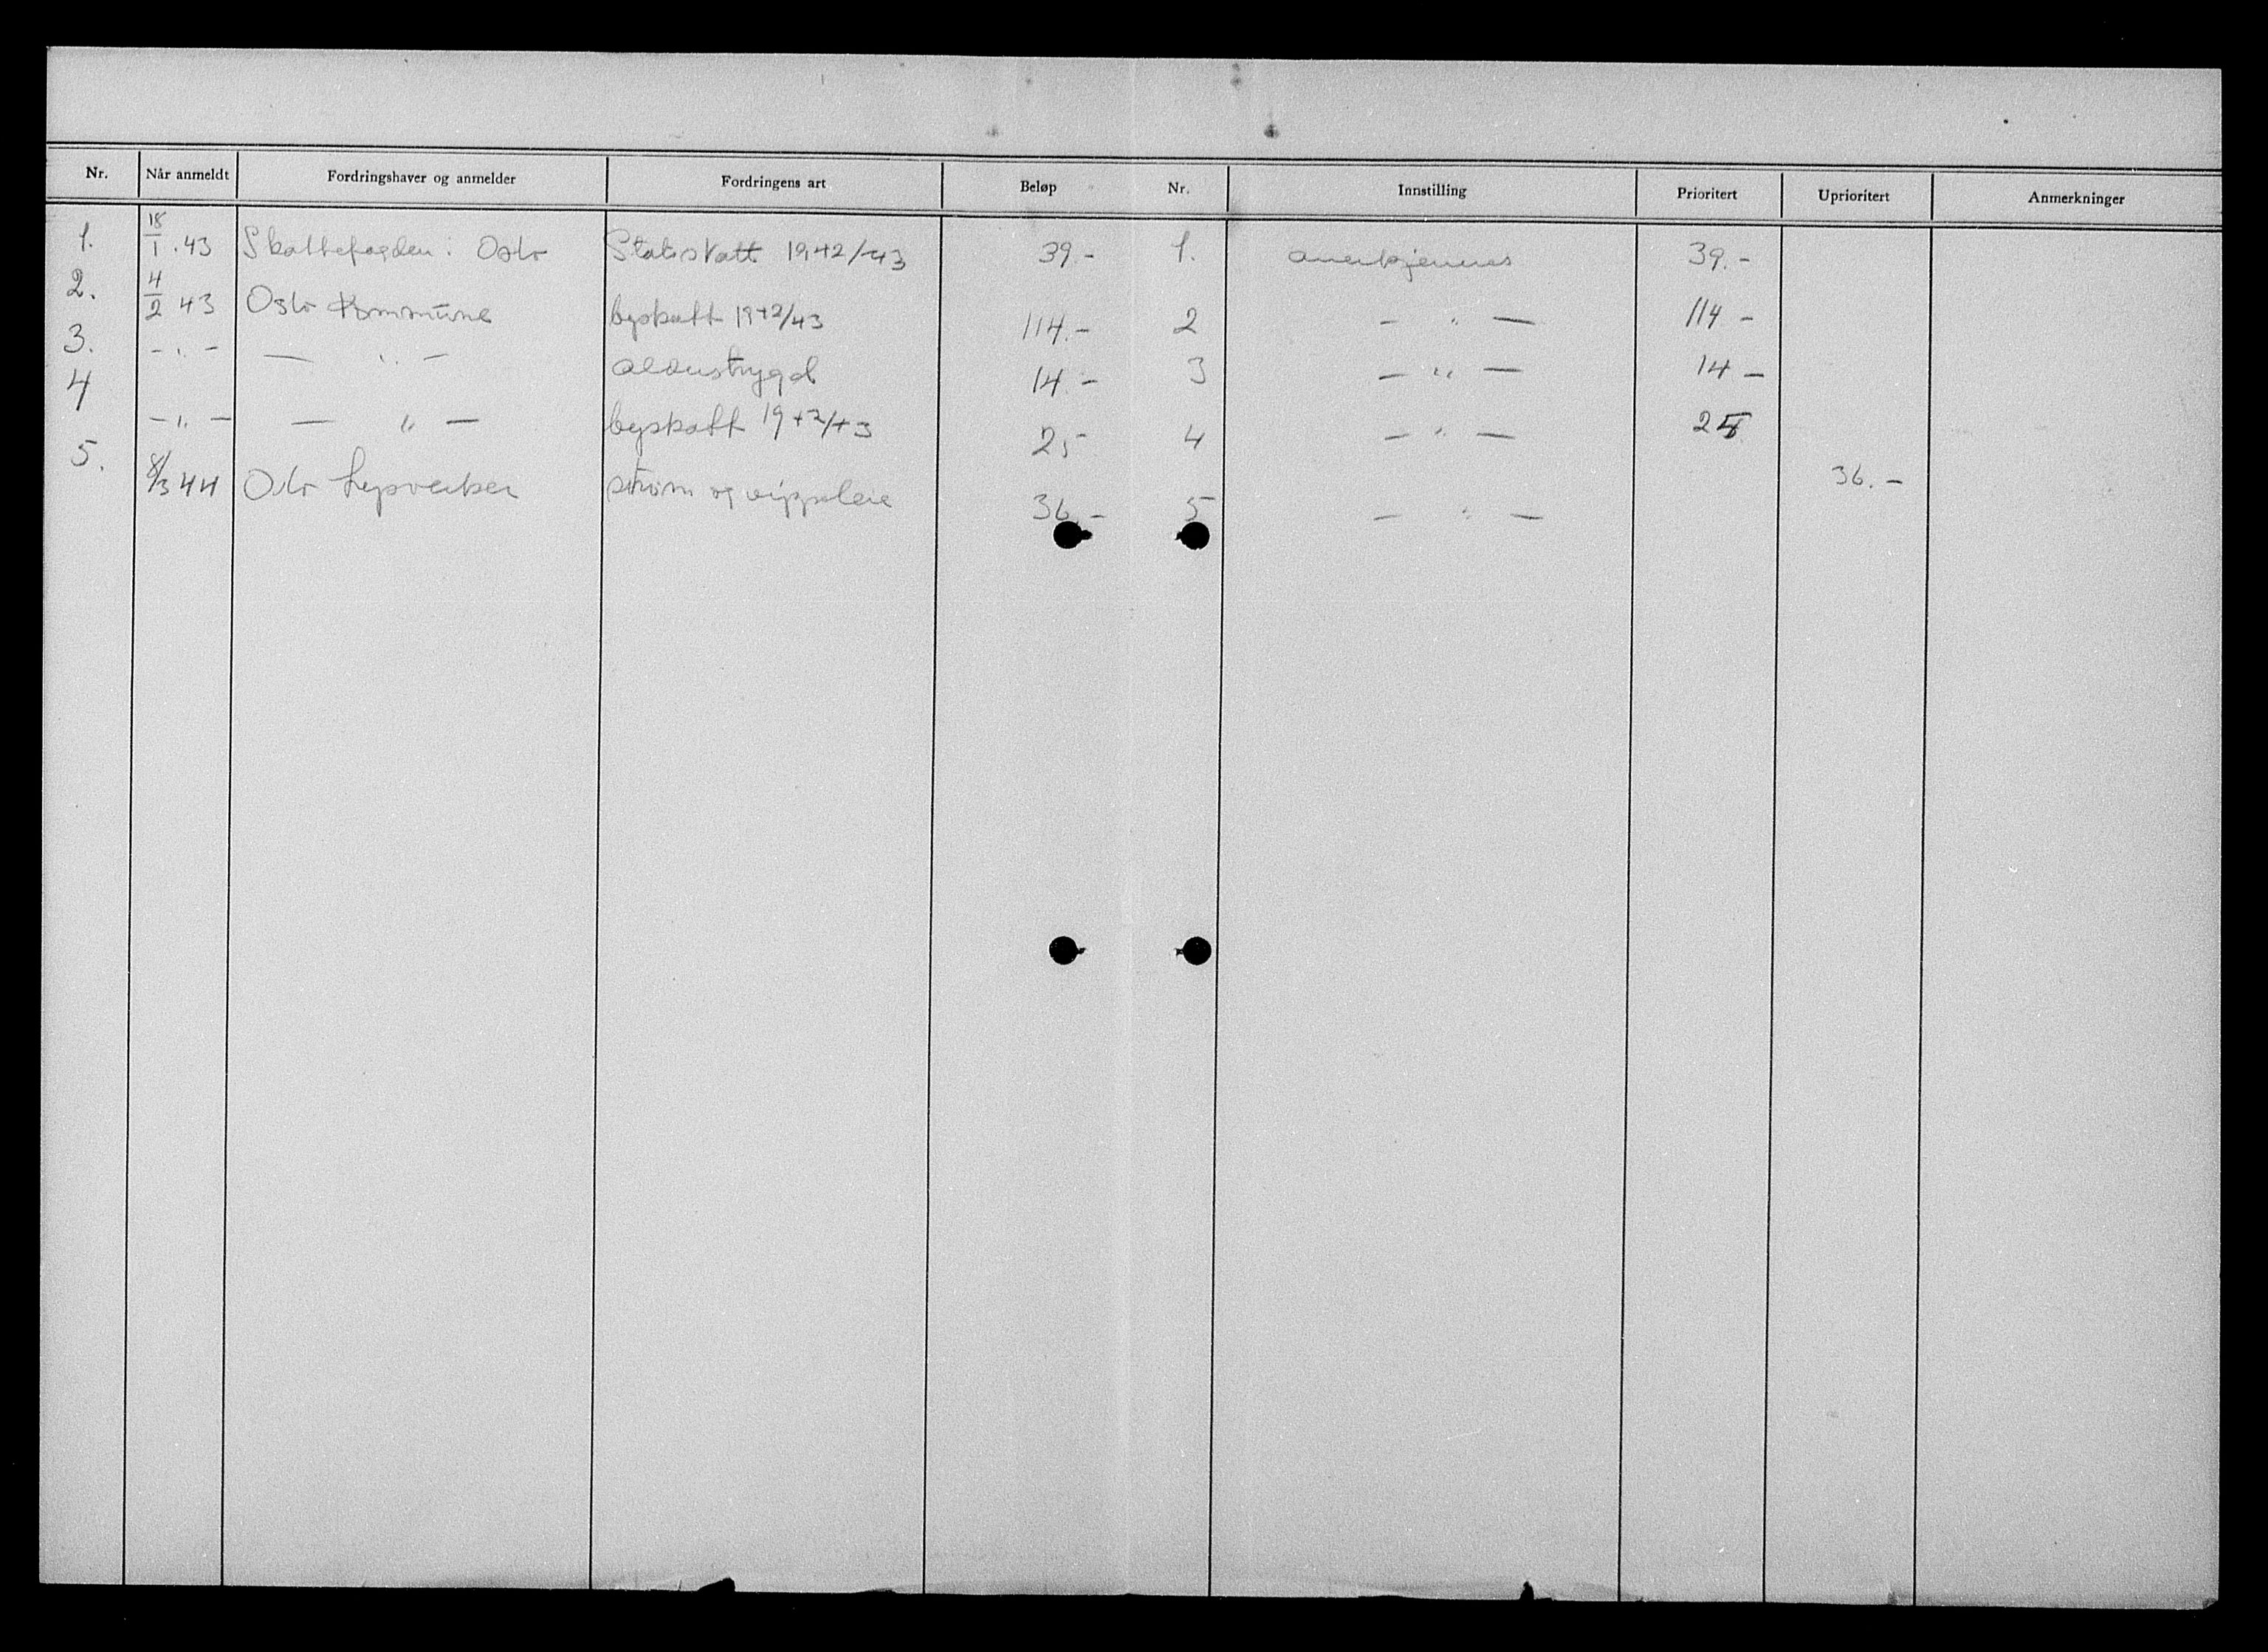 Nr. Når anmeldt Fordringshaver og anmelder Fordringens art Beløp Nr. Innstilling Prioritert Uprioritert Anmerkninger
1. 18/1.43 Skattefogden i Oslo Statsskatt 1942/43 39.- 1. anerkjennes 39.-
2. 4/2 43 Oslo Kommune byskatt 1942/43 114.- 2 - " - 114 -
3. - " - - " - alderstrygd 14.- 3 - " - 14 -
4 - " - - " - byskatt 1942/43 25 4 - " - 25
5. 8/3 44 Oslo Lysverker strøm og vippeleie 36.- 5 - " - 36.-